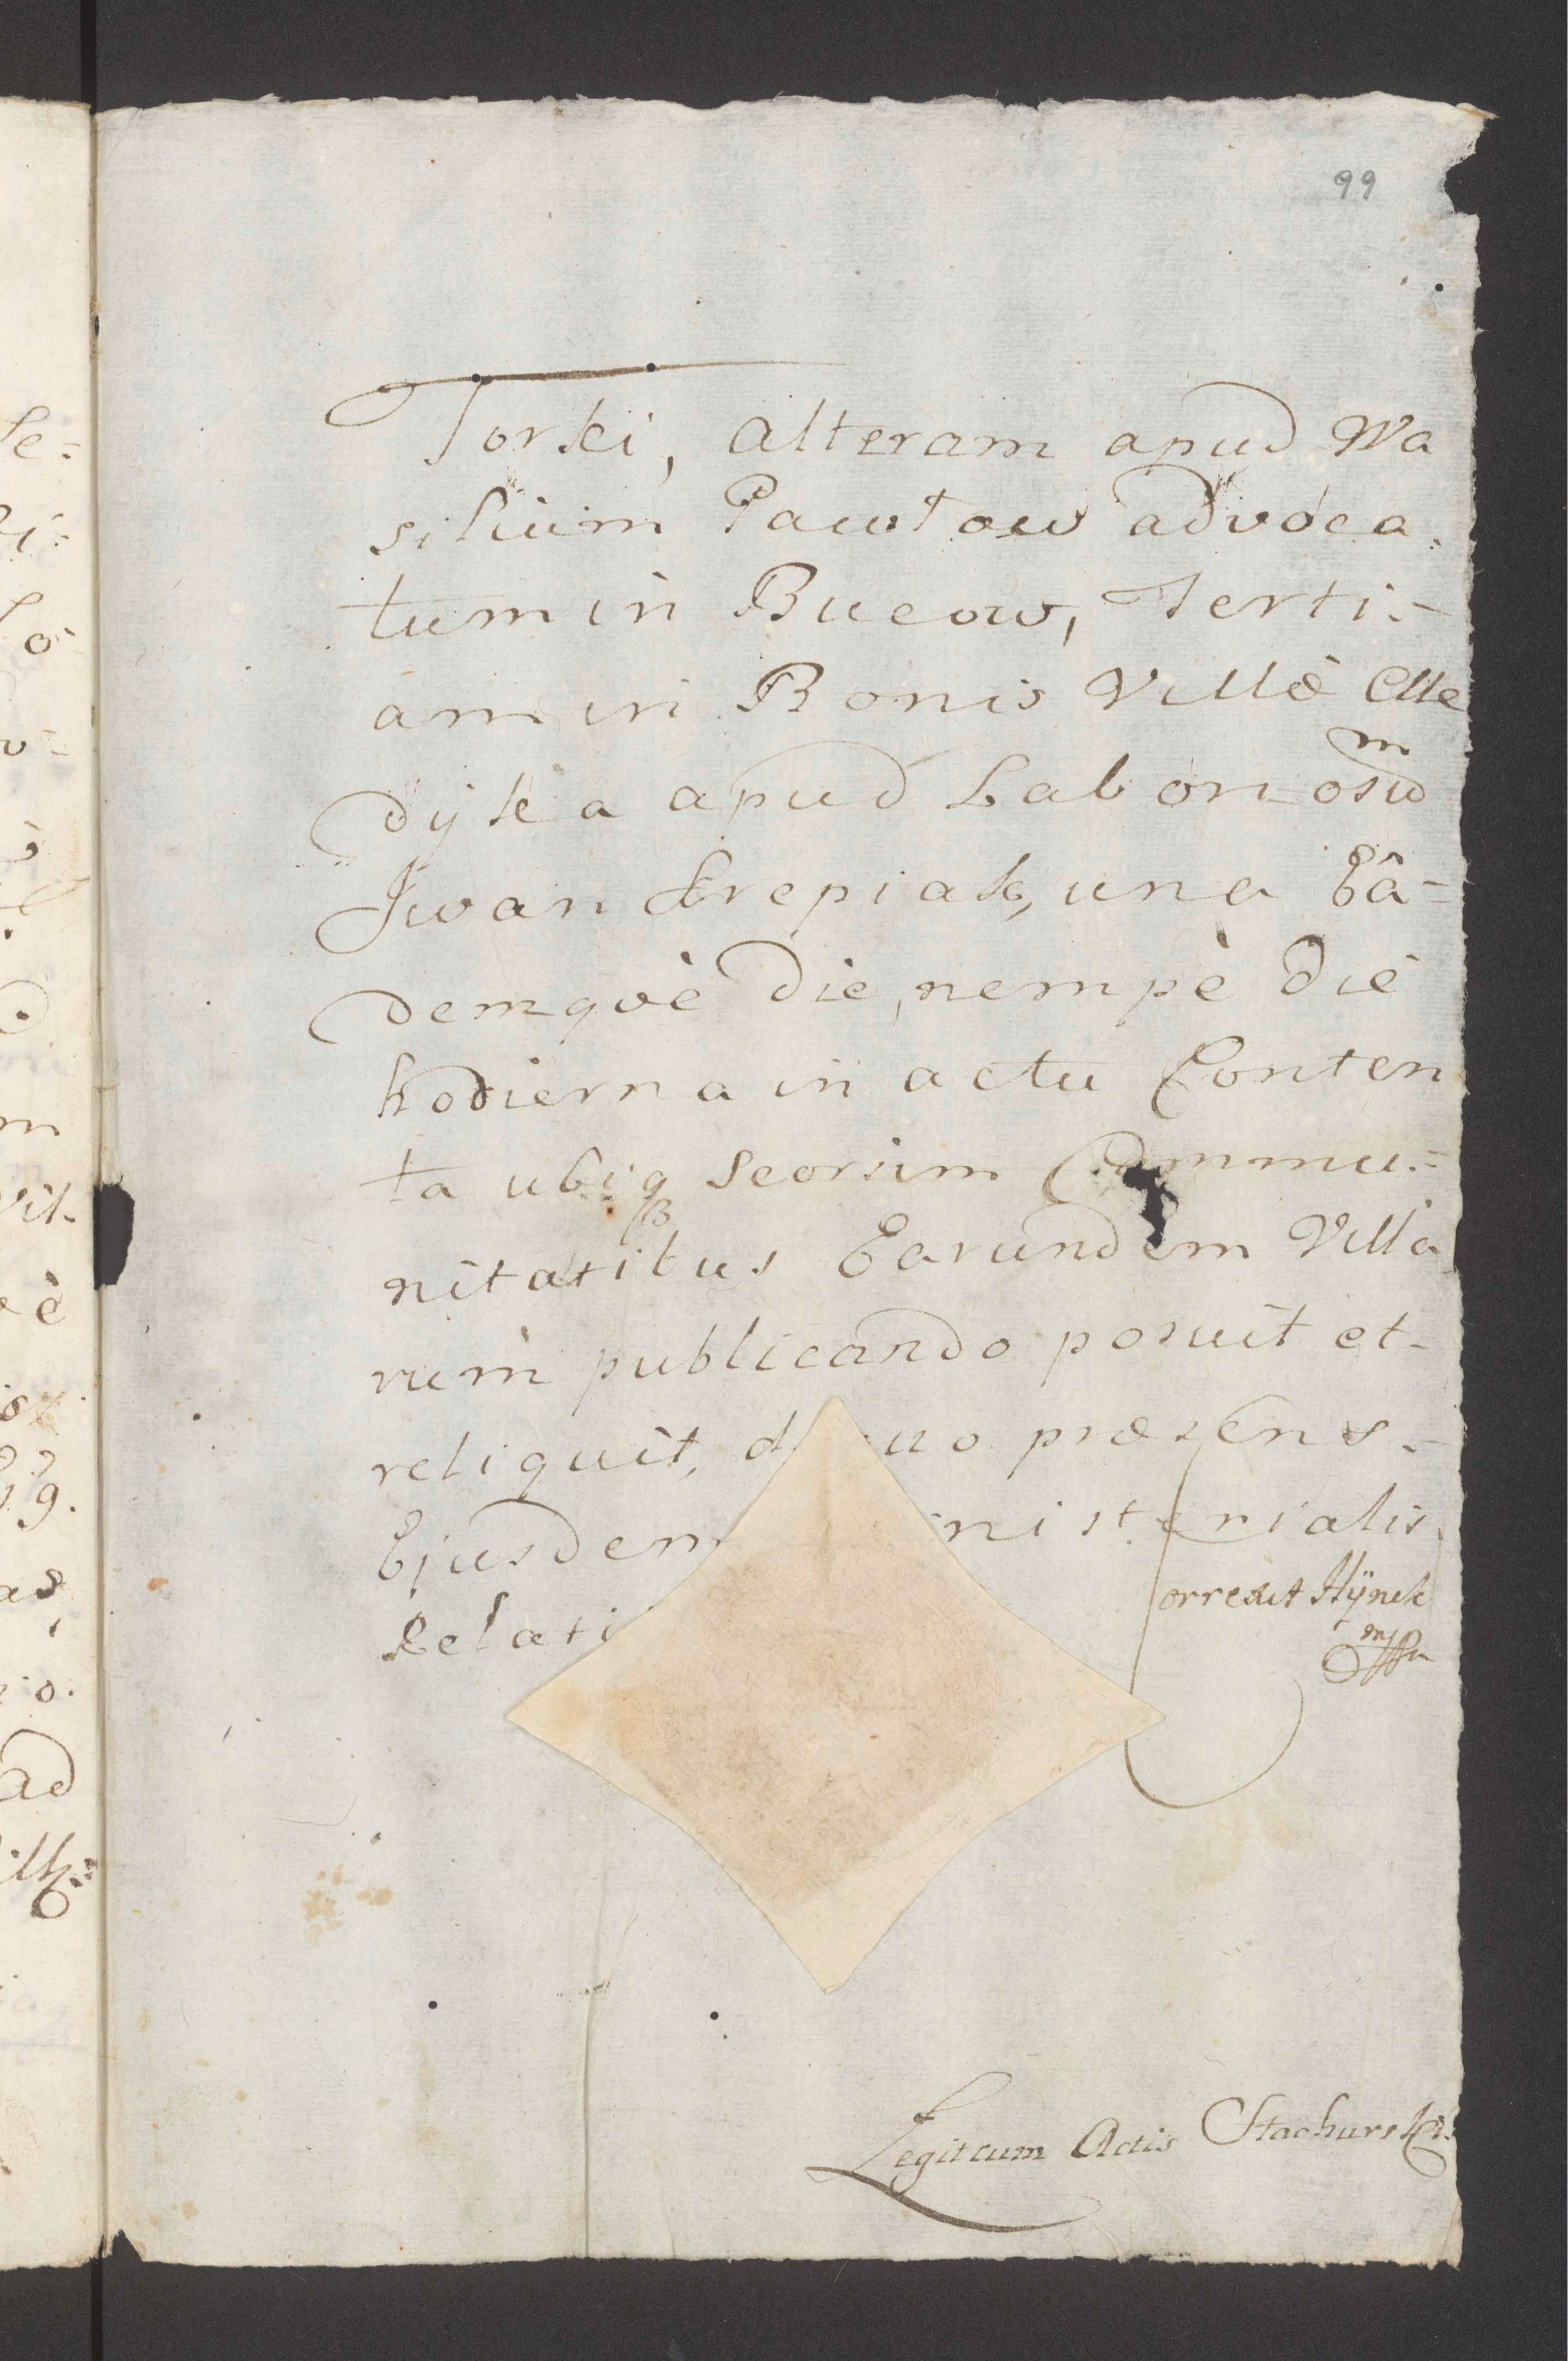 99
Torki, alteram apud Wa
silium Pawłow advoca.
tum in Bucow, Terti:-
am in Bonis Villæ Me
dyka apud Labonosum
Iwan Krepiak, una Eâ-
demquè die, nempè die
hodierna in actu Conten
ta ubiq seorsim Commu:-
nitatibus Earundem Villa
rum publicando posuit et-
reliquit, d uo præsens.-
Ejusdem nisterialis
Relati
Correxit Hÿnek
mppa
Legit cum Actis Stachurski